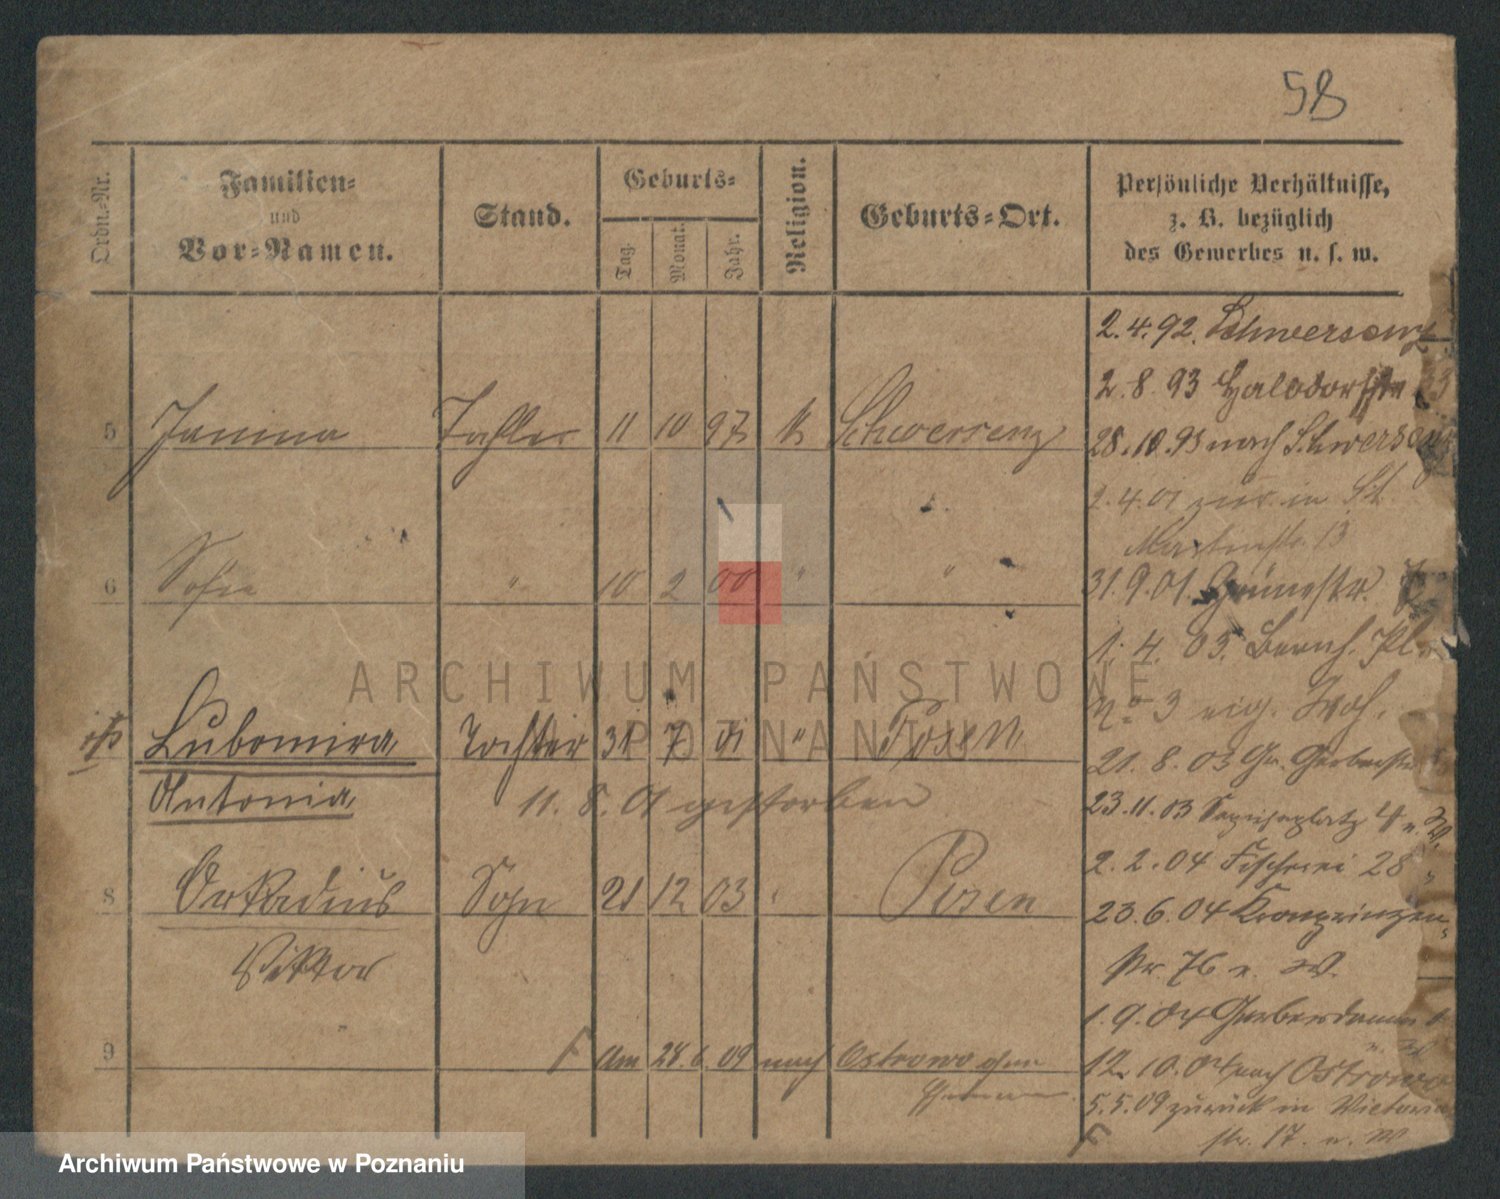 58
Ordn.-Nr.
Familien=
und
Vor=Namen.
Stand.
Geburts=
Tag.
Monat.
Jahr.
Religion.
Geburts=Ort.
Persönliche Verhältnisse,
z. B. bezüglich
des Gewerbes u. s. w.
2.4.92. Schwersenz
2.8.93 Halbdorfstr
5 Janina Tochter 11 10 97 k Schwersenz
28.10.93 nach Schwersenz
2.4.01 zur. in St.
Martinstr. 13
6 Sofie " 10 2 00 " "
31.9.01. Grünestr.
1. 4. 03. Bernh. Pl.
No 3 eig. Woh.
Lubomira Tochter 31 7 01 " Posen
21. 8. 03 Gr. Gerberstr
Antonia 11. 8. 01 gestorben
23.11.03 Sapiehaplatz 4 e. W.
2. 2. 04 Fischerei 28 "
8 Arkadius Sohn 21 12 03 " Posen
23.6.04 Kronprinzen-
Viktor
str. 76 e. W.
1.9.04 Gerberdamm 1
9 F Am 28.6.09 nach Ostrowo ohne
12. 10. 04 nach Ostrowo
5.5.09 zurück in Victoria
F str. 17. e. W
ARCHIWUM PAŃSTWOWE
W POZNANIU
Archiwum Państwowe w Poznaniu